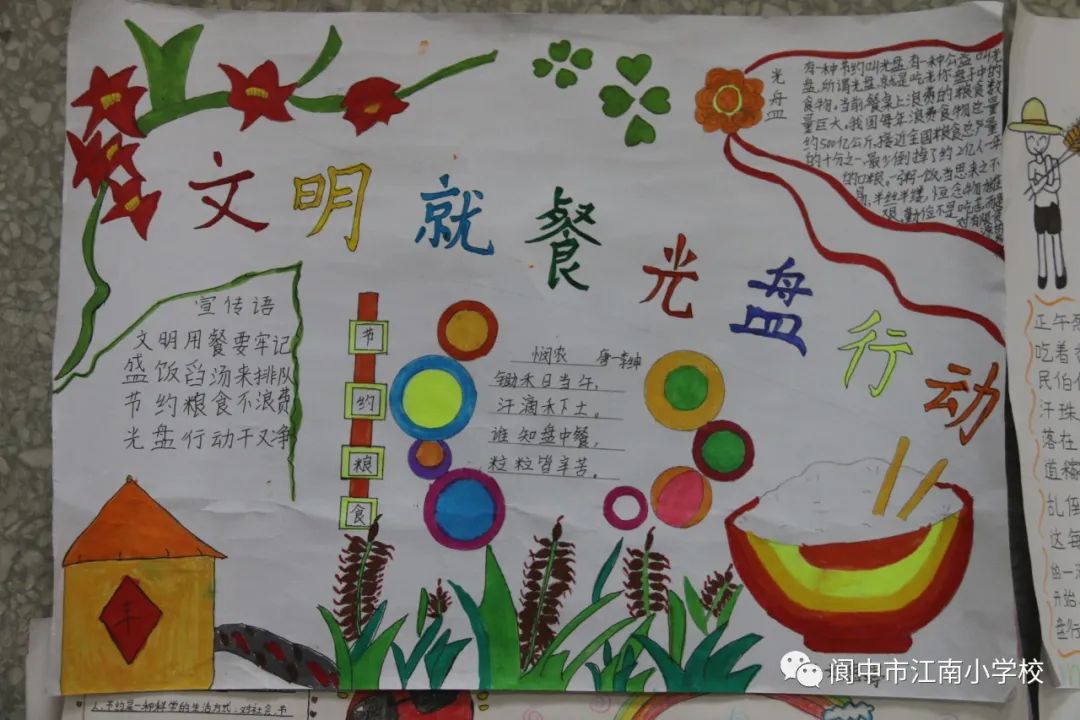 文明就餐光盘行动
宣传语
文明用餐要牢记
盛饭舀汤来排队
节约粮食不浪费
光盘行动干又净
节
约
粮
食
悯农 唐·李绅
锄禾日当午,
汗滴禾下土。
谁知盘中餐,
粒粒皆辛苦。
光盘
有一种节约叫光盘,有一种公益叫光
盘,所谓光盘,就是吃光你盘子中的
食物。当前餐桌上浪费的粮食数
量巨大。我国每年浪费食物总量
约500亿公斤,接近全国粮食总产量
的十分之一,最少倒掉了约2亿人一年
的口粮。一粥一饭,当思来之不
易,半丝半缕,恒念物力维
艰,勤俭不是吃
丰
正午
吃着
民伯
汗珠
落在
道
乱
这每
的一
开始
1、节约是一种科学的生活方式,对社会、节
阆中市江南小学校